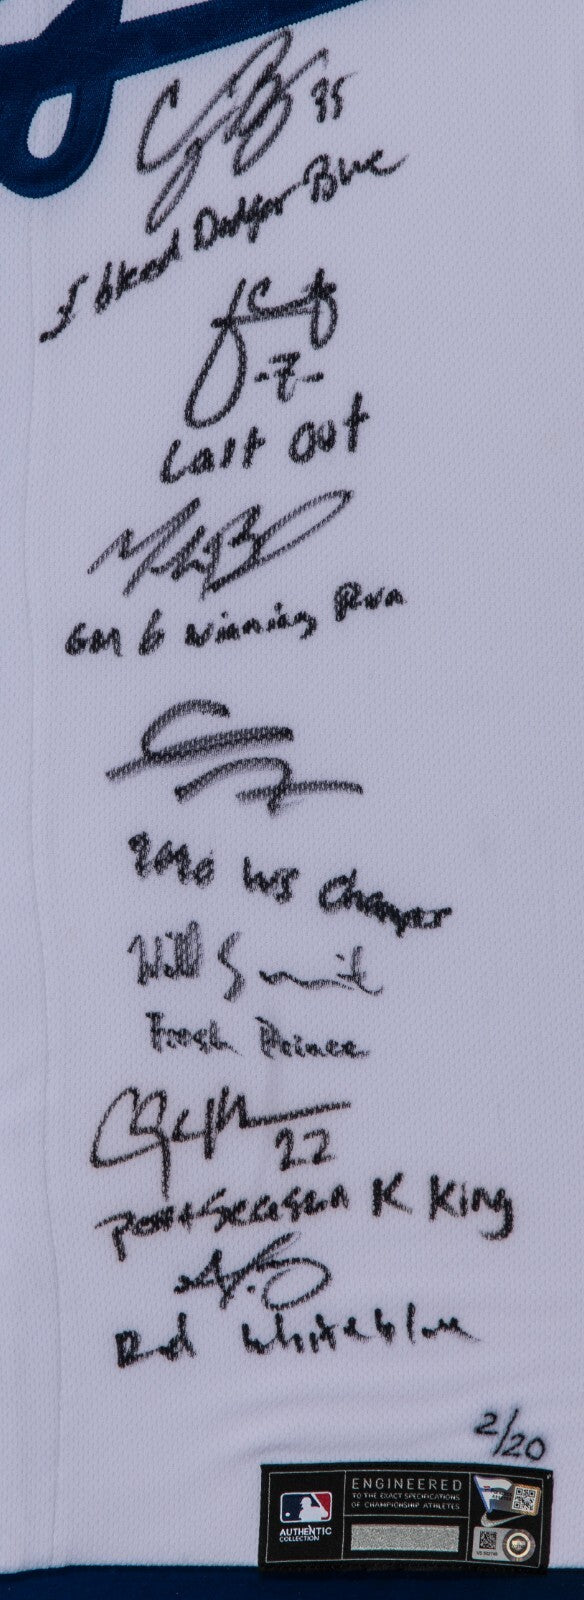 35
I bleed Dodger Blue
-7-
Last Out
GM 6 Winning Run
2020 WS Champs
Will Smith
Fresh Prince
22
Postseason K King
Red white blue
2/20
ENGINEERED
TO THE EXACT SPECIFICATIONS
OF CHAMPIONSHIP ATHLETES
AUTHENTIC
COLLECTION